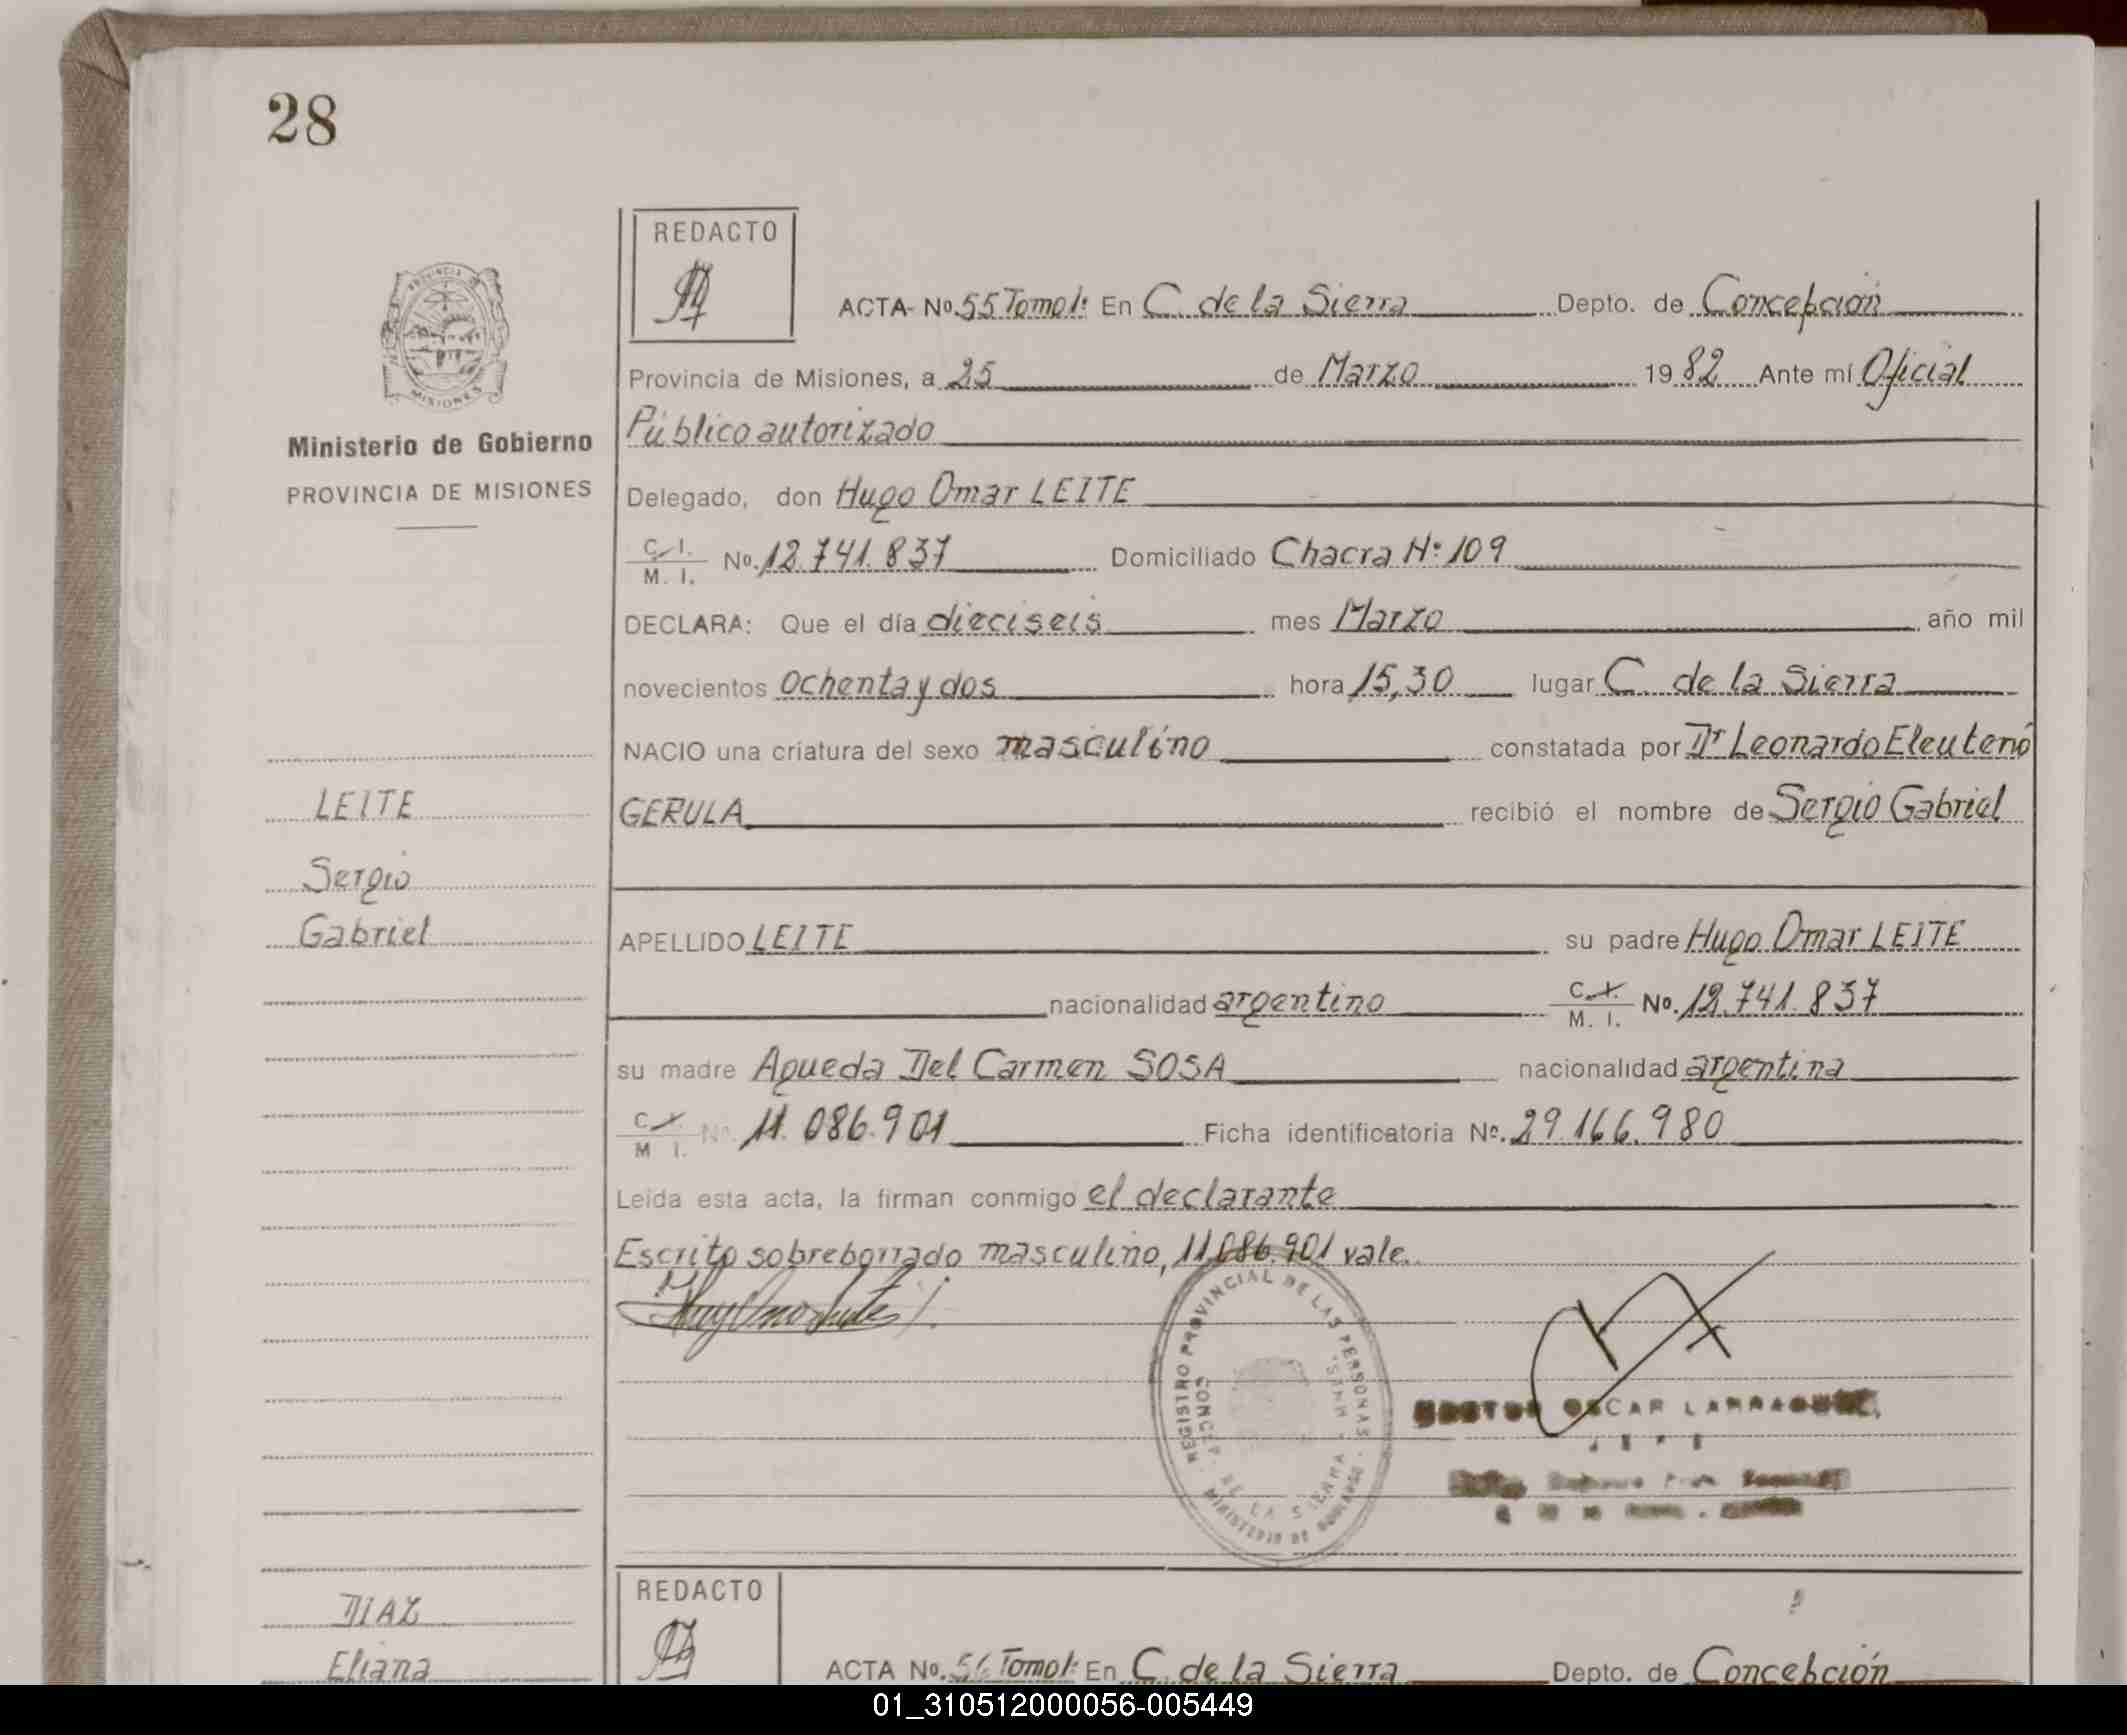 28
REDACTO
ACTA- No. 55 Tomo 1: En C. de la Sierra Depto. de Concepción
Provincia de Misiones, a 25 de Marzo 1982 Ante mí Oficial
Público autorizado
Delegado, don Hugo Omar LEITE
C. I. M. I. No. 12.741.837 Domiciliado Chacra Nº 109
DECLARA: Que el día dieciseis mes Marzo año mil
novecientos ochenta y dos hora 15,30 lugar C. de la Sierra
NACIO una criatura del sexo masculino constatada por Dr Leonardo Eleuterio
GERULA recibió el nombre de Sergio Gabriel
APELLIDO LEITE su padre Hugo Omar LEITE
nacionalidad argentino C. I. M. I. No. 12.741.837
su madre Agueda Del Carmen SOSA nacionalidad argentina
C. I. M. I. No. 11.086.901 Ficha identificatoria No. 29.166.980
Leída esta acta, la firman conmigo el declarante
Escrito sobreborrado masculino, 11.086.901 vale.
REGISTRO PROVINCIAL DE LAS PERSONAS
CONCEP. DE LA SIERRA - MNES.
MINISTERIO DE GOBIERNO
OSCAR
PROVINCIA DE
MISIONES
Ministerio de Gobierno
PROVINCIA DE MISIONES
LEITE
Sergio
Gabriel
DIAZ
Eliana
REDACTO
ACTA No. 56 Tomo 1: En C. de la Sierra Depto. de Concepción
01_310512000056-005449